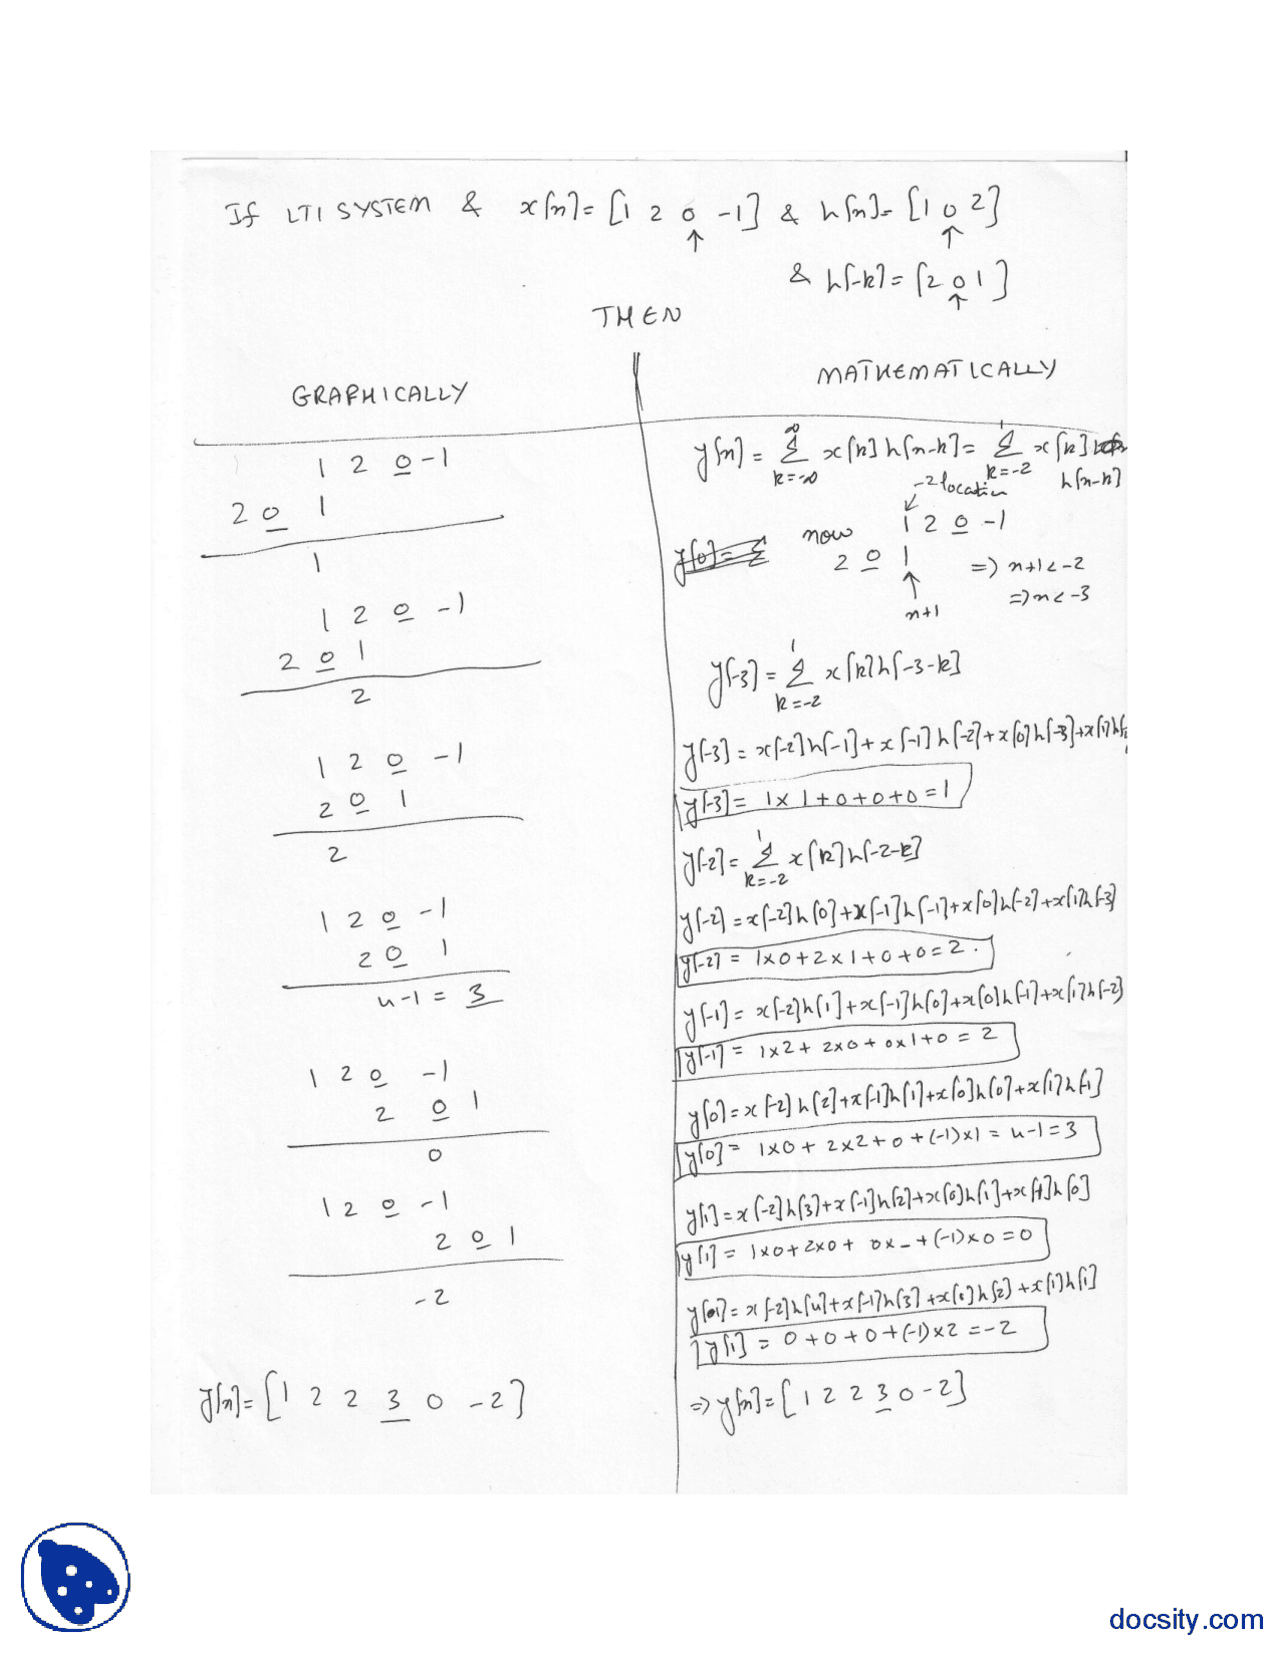 If LTI SYSTEM & x[n]= [1 2 0 -1] & h[n]= [1 0 2]
↑ ↑
& h[-k]= [2 0 1]
↑
THEN
GRAPHICALLY
1 2 0 -1
2 0 1
1
1 2 0 -1
2 0 1
2
1 2 0 -1
2 0 1
2
1 2 0 -1
2 0 1
4-1 = 3
1 2 0 -1
2 0 1
0
1 2 0 -1
2 0 1
-2
y[n]= [1 2 2 3 0 -2]
MATHEMATICALLY
y[n]= ∞Σk=-∞ x[k] h[n-k]= 1Σk=-2 x[k]
h[n-k]
-2 location
now 1 2 0 -1
2 0 1 => n+1<-2
↑ => n<-3
n+1
y[-3]= 1Σk=-2 x[k]h[-3-k]
y[-3]= x[-2]h[-1]+x[-1]h[-2]+x[0]h[-3]+x[1]h[
y[-3]= 1x1+0+0+0=1
y[-2]= 1Σk=-2 x[k]h[-2-k]
y[-2]=x[-2]h[0]+x[-1]h[-1]+x[0]h[-2]+x[1]h[-3]
y[-2]= 1x0+2x1+0+0=2.
y[-1]= x[-2]h[1]+x[-1]h[0]+x[0]h[-1]+x[1]h[-2]
y[-1]= 1x2+ 2x0+ 0x1+0 = 2
y[0]=x[-2]h[2]+x[-1]h[1]+x[0]h[0]+x[1]h[-1]
y[0]= 1x0+ 2x2+0+(-1)x1= 4-1=3
y[1]=x[-2]h[3]+x[-1]h[2]+x[0]h[1]+x[1]h[0]
y[1]= 1x0+2x0+ 0x-+(-1)x0=0
=x[-2]h[4]+x[-1]h[3]+x[0]h[2]+x[1]h[1]
y[1]= 0+0+0+(-1)x2=-2
=> y[n]= [1 2 2 3 0 -2]
docsity.com